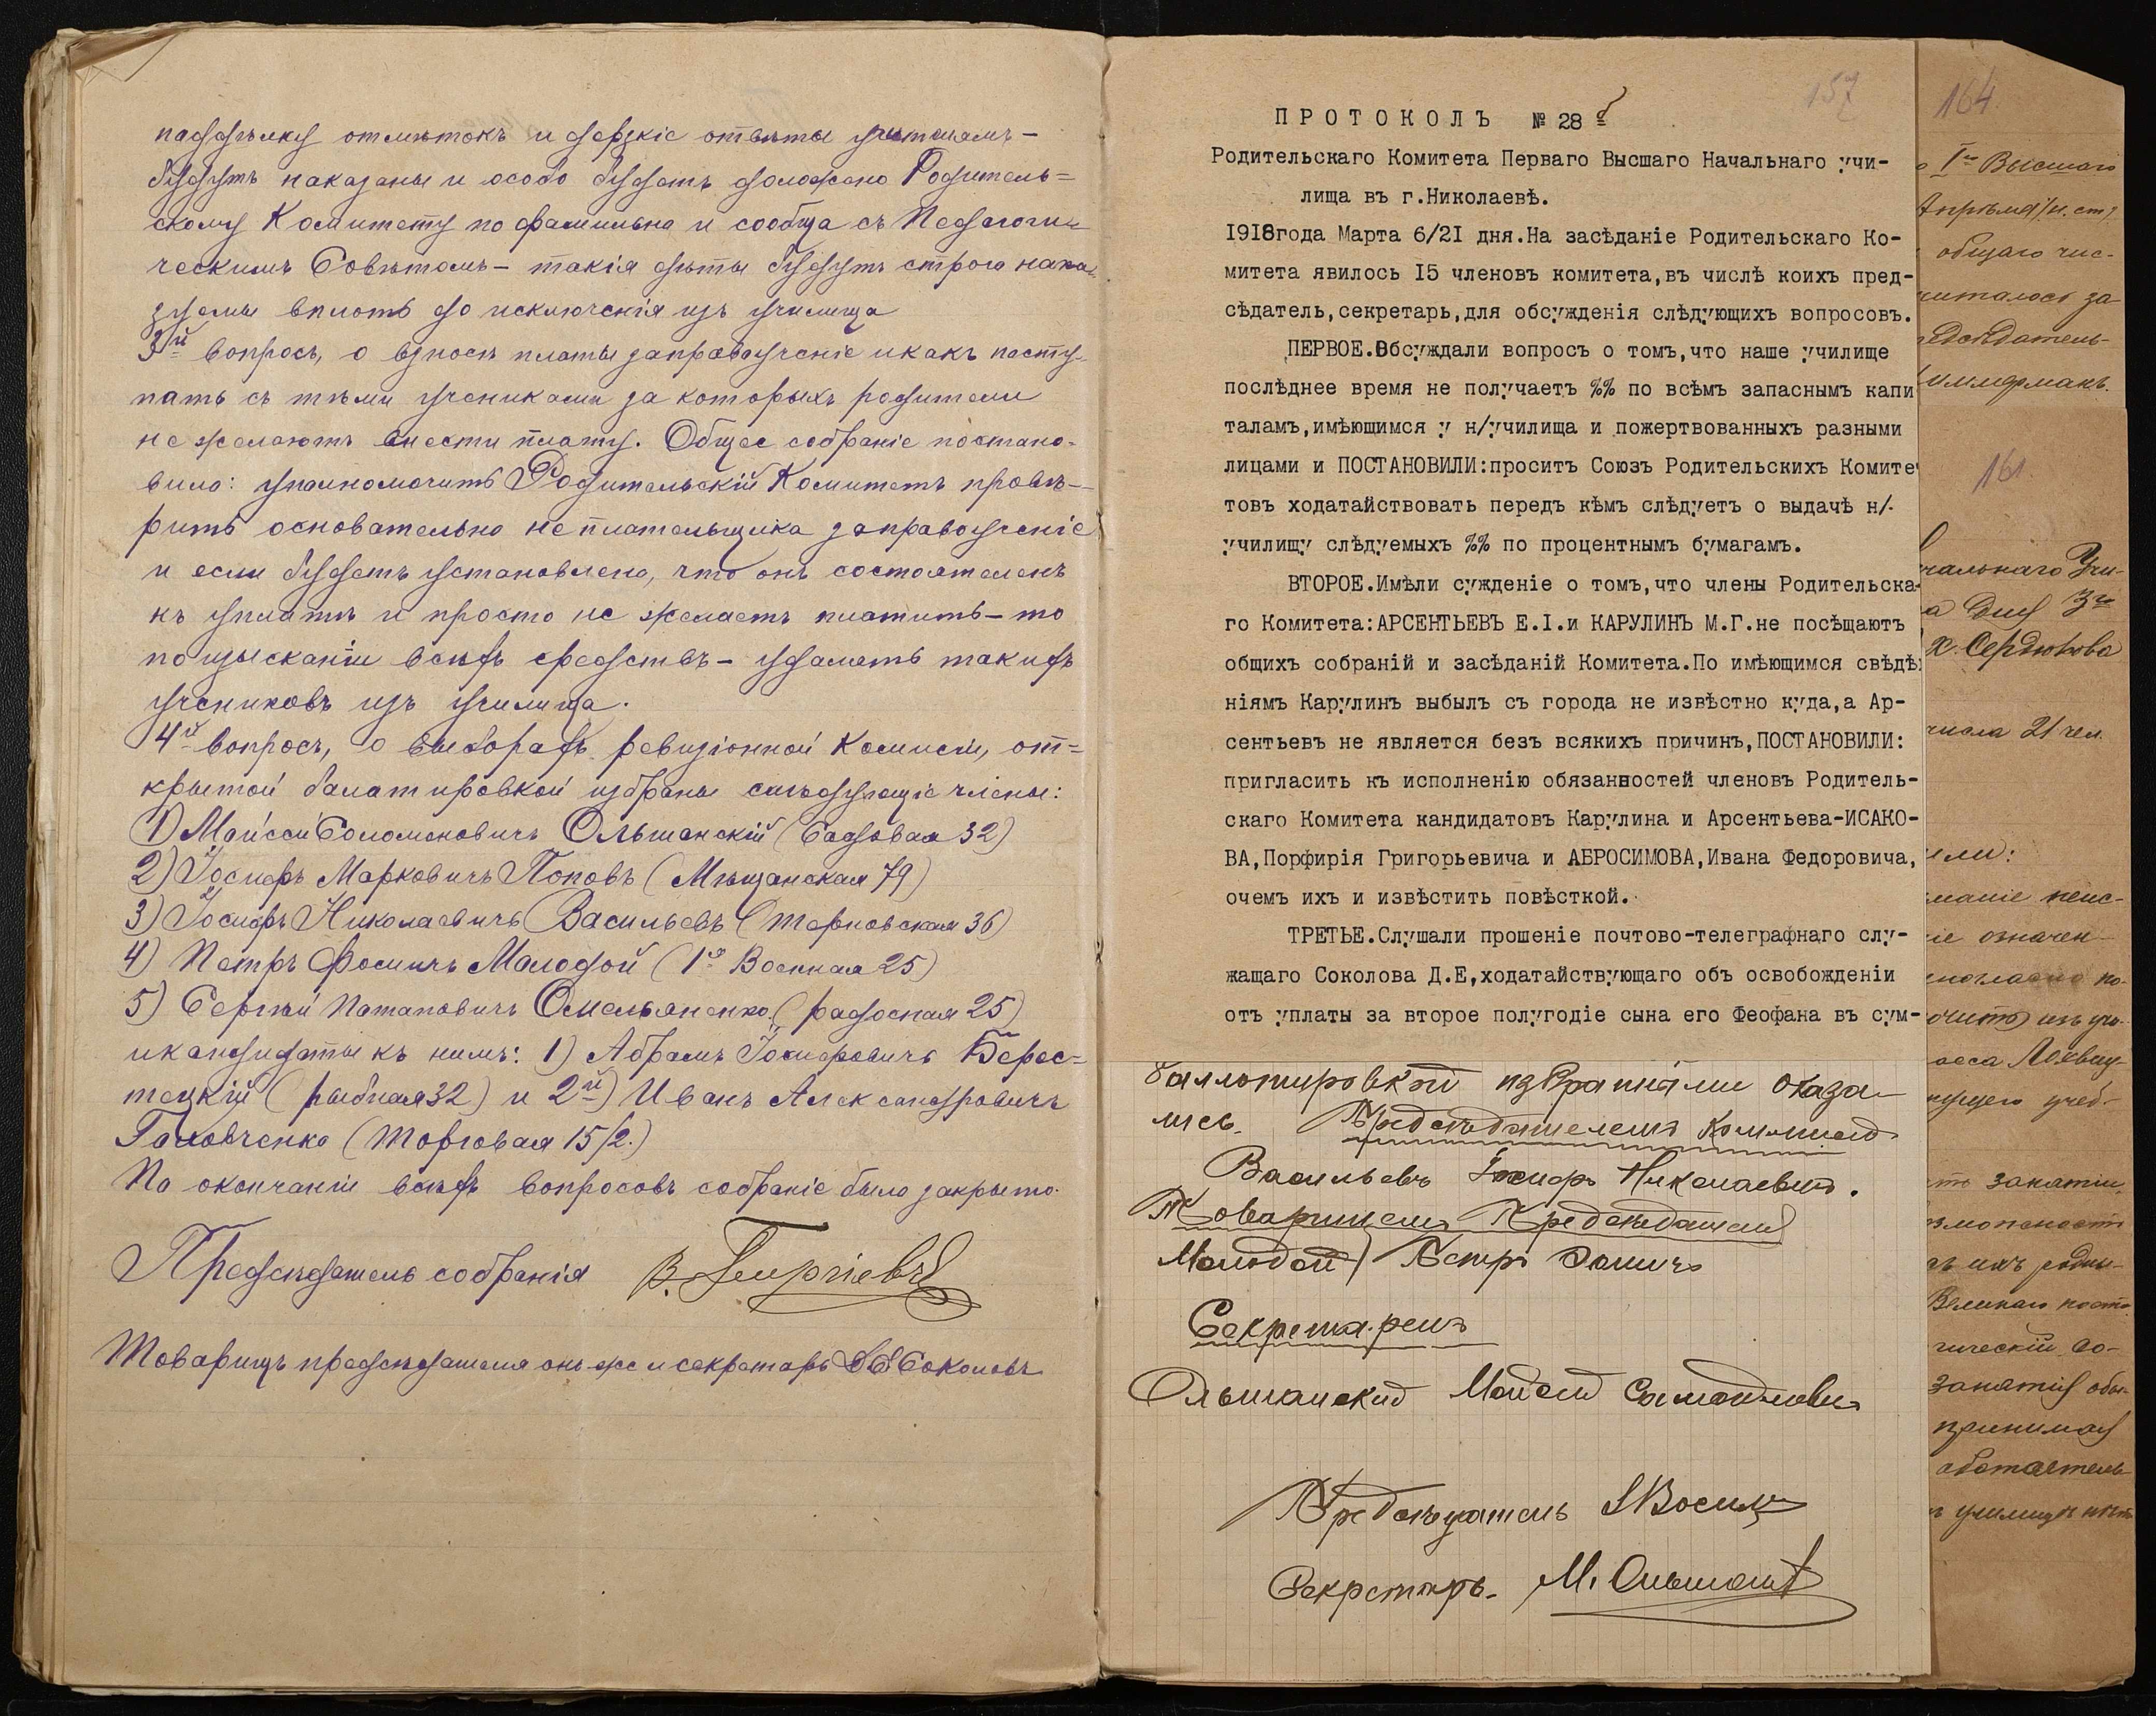 поддѣлку отмѣтокъ и дерзкіе отвѣты учителямъ –
будутъ наказаны и особо будетъ доложено Родитель=
скому Комитету по фамильно и сообща съ Педагоги=
ческимъ Совѣтомъ – такія дѣти будутъ строго нака=
зуемы вплоть до исключенія изъ училища
3й вопросъ, о взносѣ платы заправоученіе и какъ посту-
пать съ тѣми учениками за которыхъ родители
не желаютъ внести плату. Общее собраніе постано-
вило: уполномочить Родительскій Комитетъ провѣ-
рить основательно неплательщика заправоученіе
и если будетъ установлено, что онъ состоятеленъ
къ уплатѣ и просто не желаетъ платить – то
по изысканіи всѣхъ средствъ – удалять такихъ
учениковъ изъ училища.
4й вопросъ, о выборахъ ревизіонной Комисіи, от=
крытой балатировкой избраны слѣдующіе члены:
1) Мойсей Соломоновичъ Ольшанскій (Садовая 32)
2) Іосифъ Марковичъ Поповъ (Мѣщанская 79)
3) Іосифъ Николаевичъ Васильевъ (Терновская 36)
4) Петръ Фомичъ Молодой (1я Военная 25)
5) Сергѣй Потаповичъ Омельяненко (радосная 25)
и кандидаты къ нимъ: 1) Абрамъ Іосифовичъ Берес=
тецкій (рыбная 32) и 2й) Иванъ Александровичъ
Головченко (Торговая 15/2.)
По окончаніи всѣхъ вопросовъ собраніе было закрыто.
Предсѣдатель собранія В. Георгіевъ
Товарищъ предсѣдателя онъ же и секретарь Соколовъ
157
ПРОТОКОЛЪ № 28 б
Родительскаго Комитета Перваго Высшаго Начальнаго учи-
лища въ г.Николаевѣ.
1918года Марта 6/2I дня.На засѣданіе Родительскаго Ко-
митета явилось I5 членовъ комитета,въ числѣ коихъ пред-
сѣдатель,секретарь,для обсужденія слѣдующихъ вопросовъ.
ПЕРВОЕ.Обсуждали вопросъ о томъ,что наше училище
послѣднее время не получаетъ %% по всѣмъ запаснымъ капи
таламъ,имѣющимся у н/училища и пожертвованныхъ разными
лицами и ПОСТАНОВИЛИ:проситъ Союзъ Родительскихъ Комите
товъ ходатайствовать передъ кѣмъ слѣдуетъ о выдачѣ н/.
училищу слѣдуемыхъ %% по процентнымъ бумагамъ.
ВТОРОЕ.Имѣли сужденіе о томъ,что члены Родительска-
го Комитета:АРСЕНТЬЕВЪ Е.I.и КАРУЛИНЪ М.Г.не посѣщаютъ
общихъ собраній и засѣданій Комитета.По имѣющимся свѣдѣ
ніямъ Карулинъ выбылъ съ города не извѣстно куда,а Ар-
сентьевъ не является безъ всякихъ причинъ,ПОСТАНОВИЛИ:
пригласить къ исполненію обязанностей членовъ Родитель-
скаго Комитета кандидатовъ Карулина и Арсентьева-ИСАКО-
ВА,Порфирія Григорьевича и АБРОСИМОВА,Ивана Федоровича,
очемъ ихъ и извѣстить повѣсткой.
ТРЕТЬЕ.Слушали прошеніе почтово-телеграфнаго слу-
жащаго Соколова Д.Е,ходатайствующаго объ освобожденіи
отъ уплаты за второе полугодіе сына его Феофана въ сум-
баллотировкой избранными оказа-
лись. Предсѣдателемъ Коммисіи
Васильевъ Іосифъ Николаевичъ.
Товарищемъ Предсѣдателя
Молодой Петръ Фомичъ
Секретаремъ
Ольшанскій Мойсей
Предсѣдатель
Секретарь М. Ольшанск
164.
Iго Высшаго
Апрѣля/н.ст/
общаго чис-
читалось за
редсѣдатель-
161.
чальнаго Учи-
3го
Х. Сердюкова
числа 21 чел.
или:
маніе неис-
іе означен-
по-
очить изъ учи-
учеб-
занятіи
Великаго поста
гическій Со-
занятія
принимая
обстоятель-